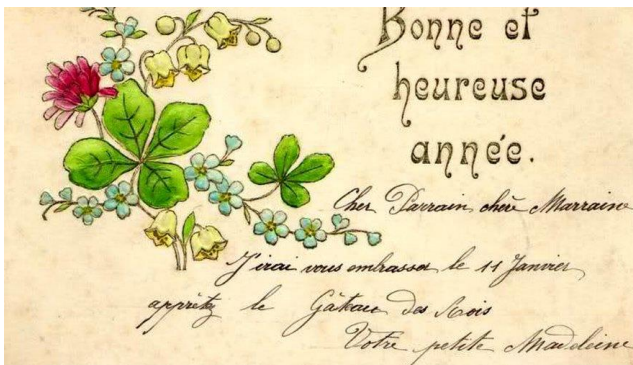 Bonne et
heureuse
année.
Cher Parrain, chère Marraine
J'irai vous embrasser le 11 Janvier,
apprêtez le Gâteau des Rois
Votre petite Madeleine